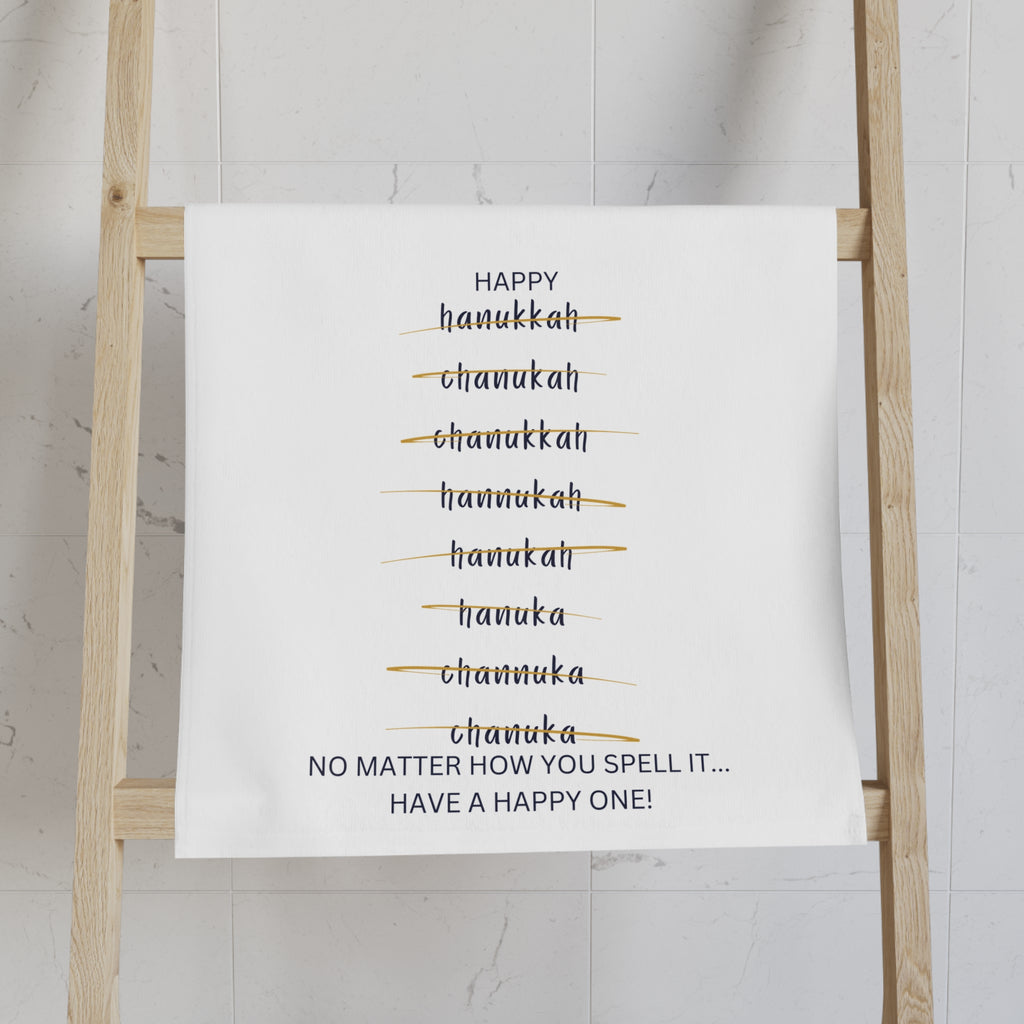 HAPPY
hanukkah
chanukah
chanukkah
hannukah
hanukah
hanuka
channuka
chanuka
NO MATTER HOW YOU SPELL IT...
HAVE A HAPPY ONE!